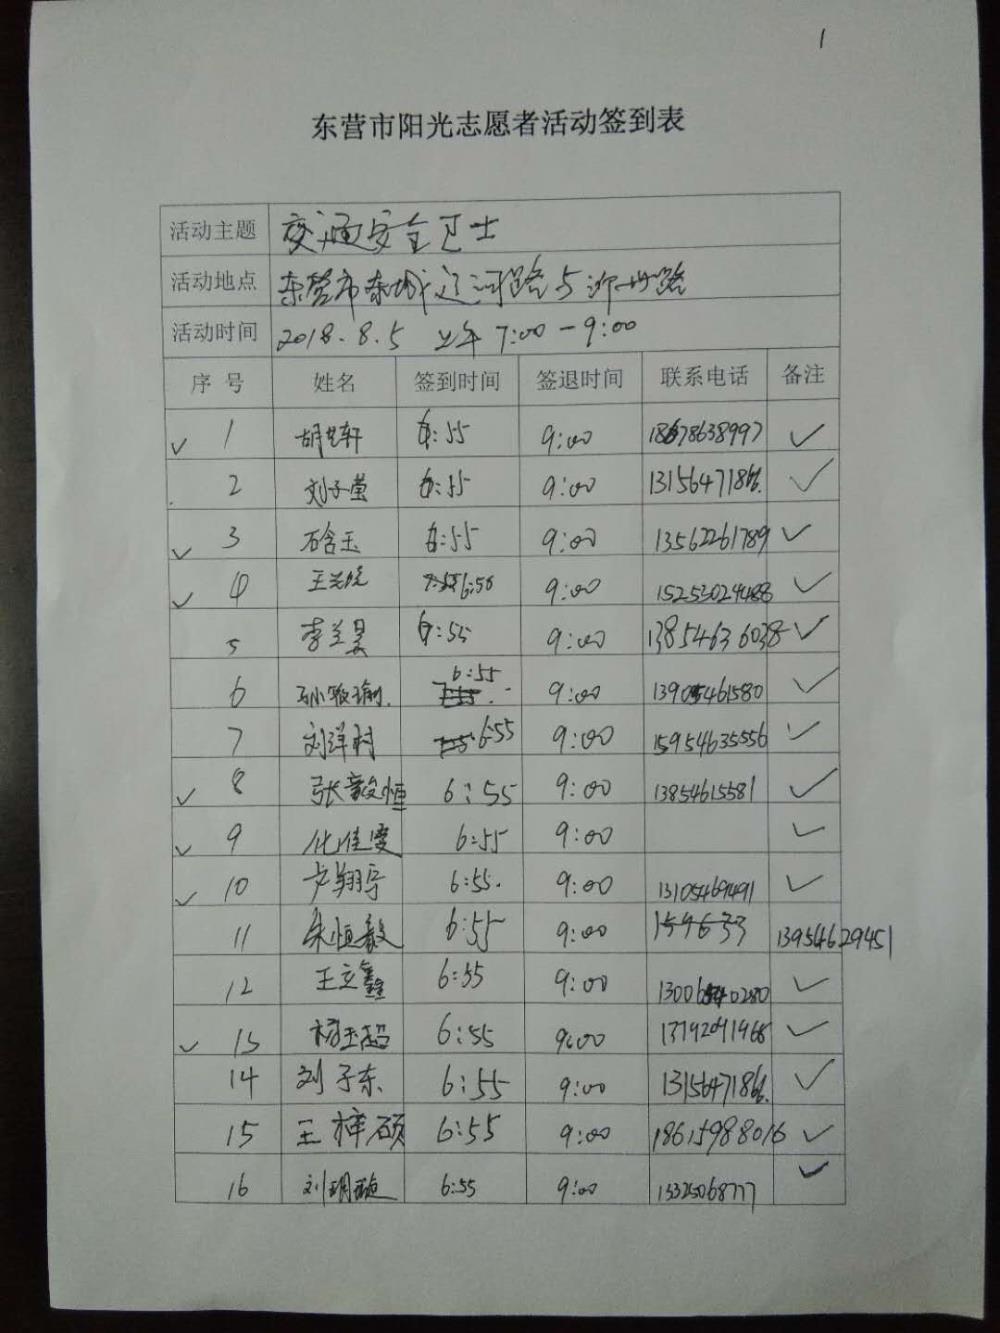 1
东营市阳光志愿者活动签到表
活动主题 交通安全卫士
活动地点 东营市东城辽河路与沂州路
活动时间 2018.8.5 上午 7:00-9:00
序号 姓名 签到时间 签退时间 联系电话 备注
✓ 1 胡艺轩 6:55 9:00 18678638997 ✓
2 刘子莹 6:55 9:00 131564718 ✓
✓ 3 石含玉 6:55 9:00 13562261789 ✓
✓ 4 王 6:50 9:00 15253024488 ✓
5 李兰昊 6:55 9:00 13854636038 ✓
6 孙敬瑜 6:55 9:00 13905461580 ✓
7 刘洋树 6:55 9:00 15954635556 ✓
✓ 8 张毅恒 6:55 9:00 13854615581 ✓
✓ 9 化佳雯 6:55 9:00 ✓
✓ 10 卢翔宇 6:55. 9:00 13105469491 ✓
11 朱恒毅 6:55 9:00 13954629451
12 王立鑫 6:55 9:00 ✓
✓ 13 杨玉超 6:55 9:00 ✓
14 刘子东 6:55 9:00 131564718 ✓
15 王梓硕 6:55 9:00 18615988016 ✓
16 刘玥璇 6:55 9:00 15325068777 ✓